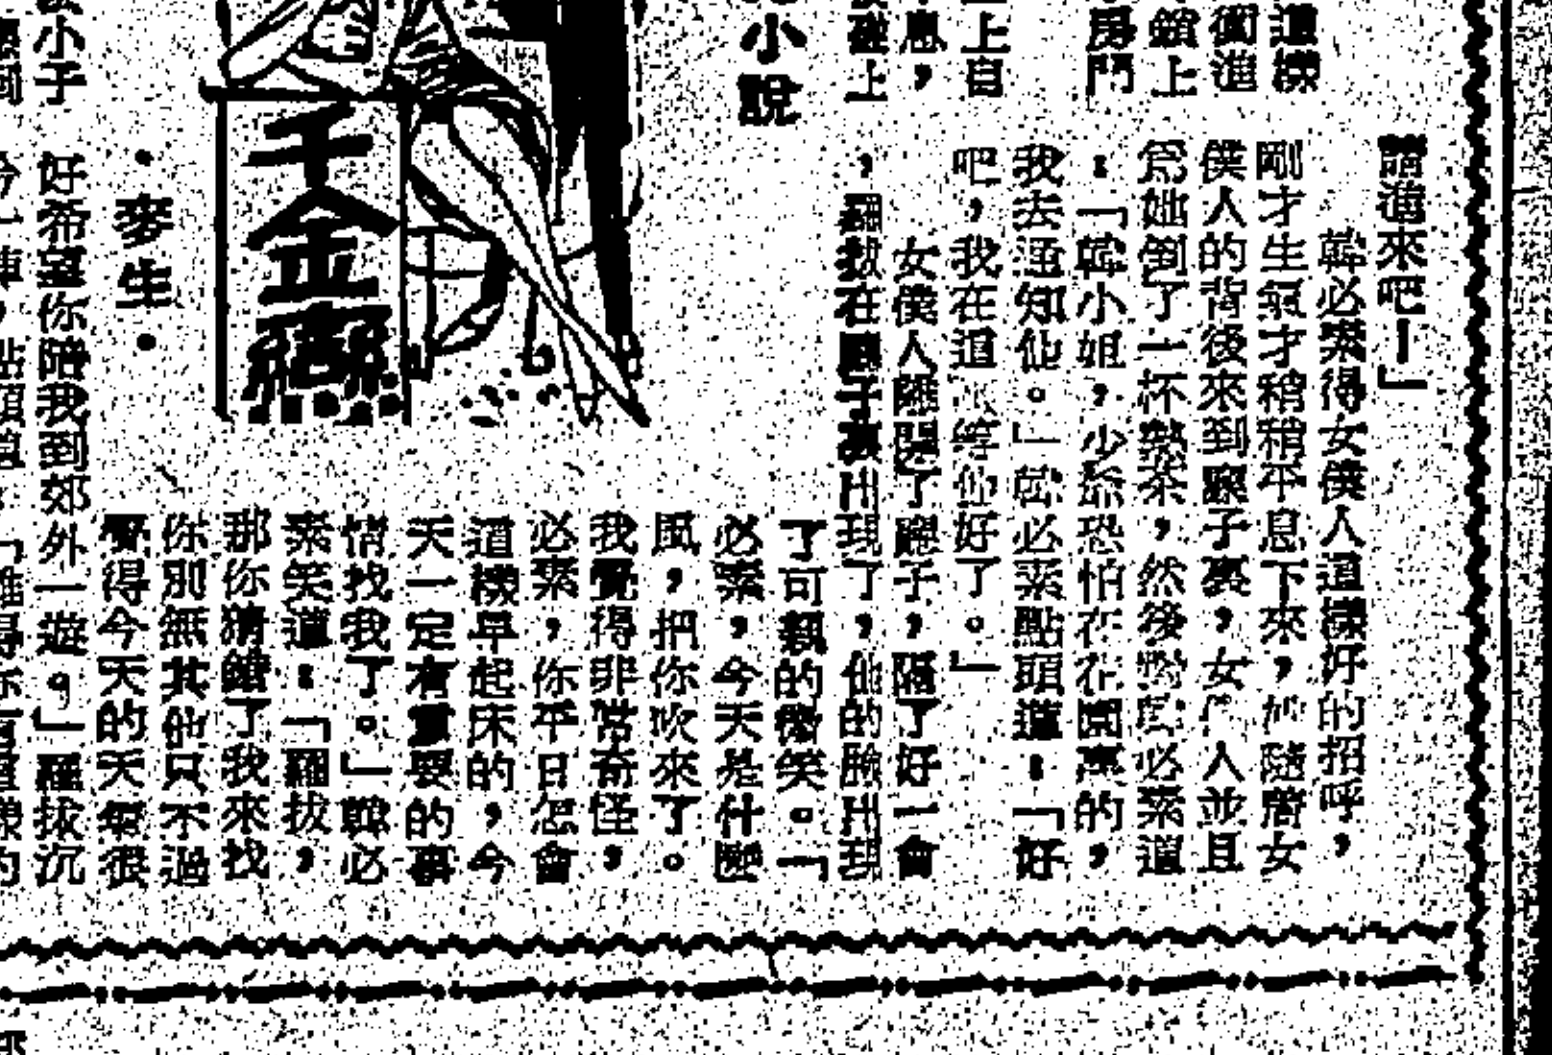 這樣
獨進
鎖上
房門
上自
息，
碰上
小說
千金劫
·麥生·
小子
請進來吧！」
韓必素得女僕人這樣好的招呼，
剛才生氣才稍稍平息下來，她隨着女
僕人的背後來到廳子裏，女僕人並且
爲她倒了一杯熱茶，然後對韓必素道
：「韓小姐，少爺恐怕在花園裏的，
我去通知他。」韓必素點頭道：「好
吧，我在這裏等他好了。」
女僕人離開了廳子，隔了好一會
，羅拔在廳子裏出現了，他的臉出現
了可親的微笑。「
必素，今天是什麼
風，把你吹來了。
我覺得非常奇怪，
必素，你平日怎會
這樣早起床的，今
天一定有重要的事
情找我了。」韓必
素笑道：「羅拔，
那你猜錯了我來找
你別無其他只不過
覺得今天的天氣很
好希望你陪我到郊外一遊。」羅拔沉